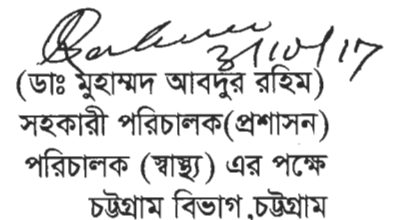 3/10/17
(ডাঃ মুহাম্মদ আবদুর রহিম)
সহকারী পরিচালক(প্রশাসন)
পরিচালক (স্বাস্থ্য) এর পক্ষে
চট্টগ্রাম বিভাগ,চট্টগ্রাম